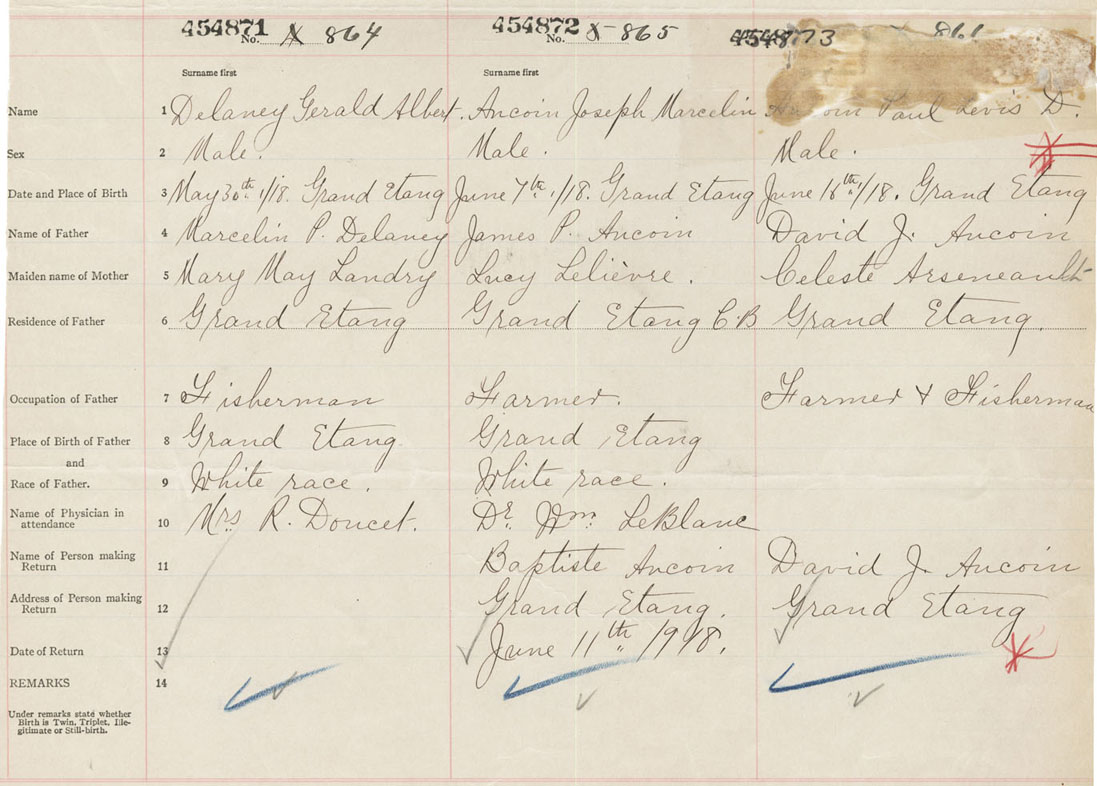 454871 454872 454873
No. X 864 No. X-865 861
Surname first Surname first
Name 1 Delaney Gerald Albert. Aucoin Joseph Marcelin Aucoin Paul Levis D.
Sex 2 Male. Male. Male.
Date and Place of Birth 3 May 30th 1/18. Grand Etang June 7th 1/18. Grand Etang June 16th 1/18. Grand Etang
Name of Father 4 Marcelin P. Delaney James P. Aucoin David J. Aucoin
Maiden name of Mother 5 Mary May Landry Lucy Lelièvre. Celeste Arseneault
Residence of Father 6 Grand Etang Grand Etang C.B Grand Etang.
Occupation of Father 7 Fisherman Farmer. Farmer & Fisherman
Place of Birth of Father 8 Grand Etang Grand Etang
and
Race of Father. 9 White race. White race.
Name of Physician in
attendance 10 Mrs R. Doucet. Dr. Wm. LeBlanc
Name of Person making
Return 11 Baptiste Aucoin David J. Aucoin
Address of Person making
Return 12 Grand Etang. Grand Etang
Date of Return 13 June 11th 1918.
REMARKS 14
Under remarks state whether
Birth is Twin, Triplet, Ille-
gitimate or Still-birth.